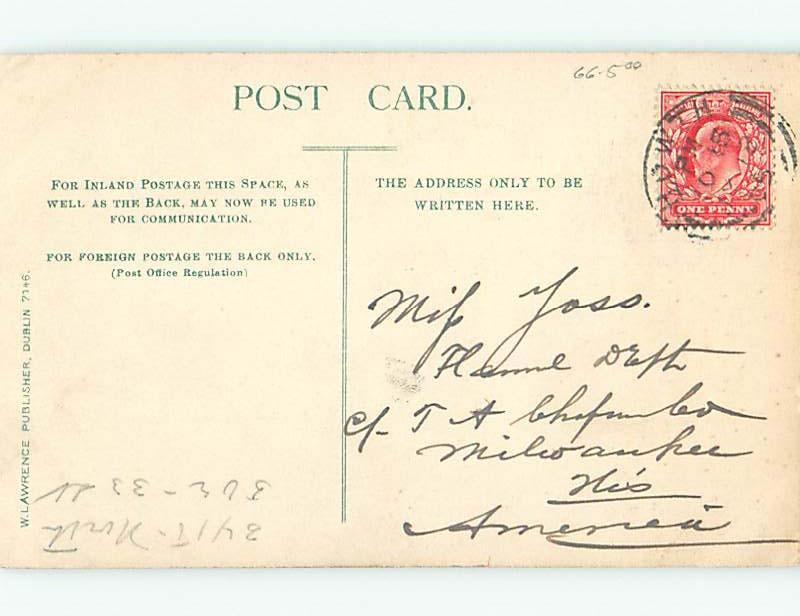 66-5⁰⁰
POST CARD.
FOR INLAND POSTAGE THIS SPACE, AS
WELL AS THE BACK, MAY NOW BE USED
FOR COMMUNICATION.
FOR FOREIGN POSTAGE THE BACK ONLY.
(Post Office Regulation)
THE ADDRESS ONLY TO BE
WRITTEN HERE.
ONE PENNY
W. LAWRENCE PUBLISHER, DUBLIN 7146.
Miss Yoss.
Flannel Dept
c/- T A Chapman Co
Milwaukee
Wis
America